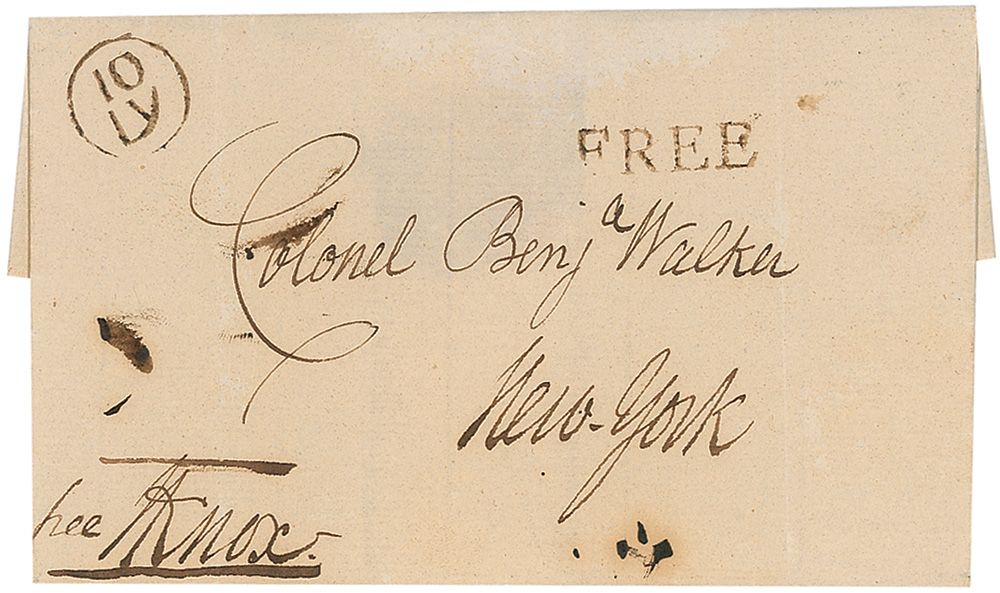 10
IY
FREE
Colonel Benjᵃ Walker
New-York
free
HKnox.